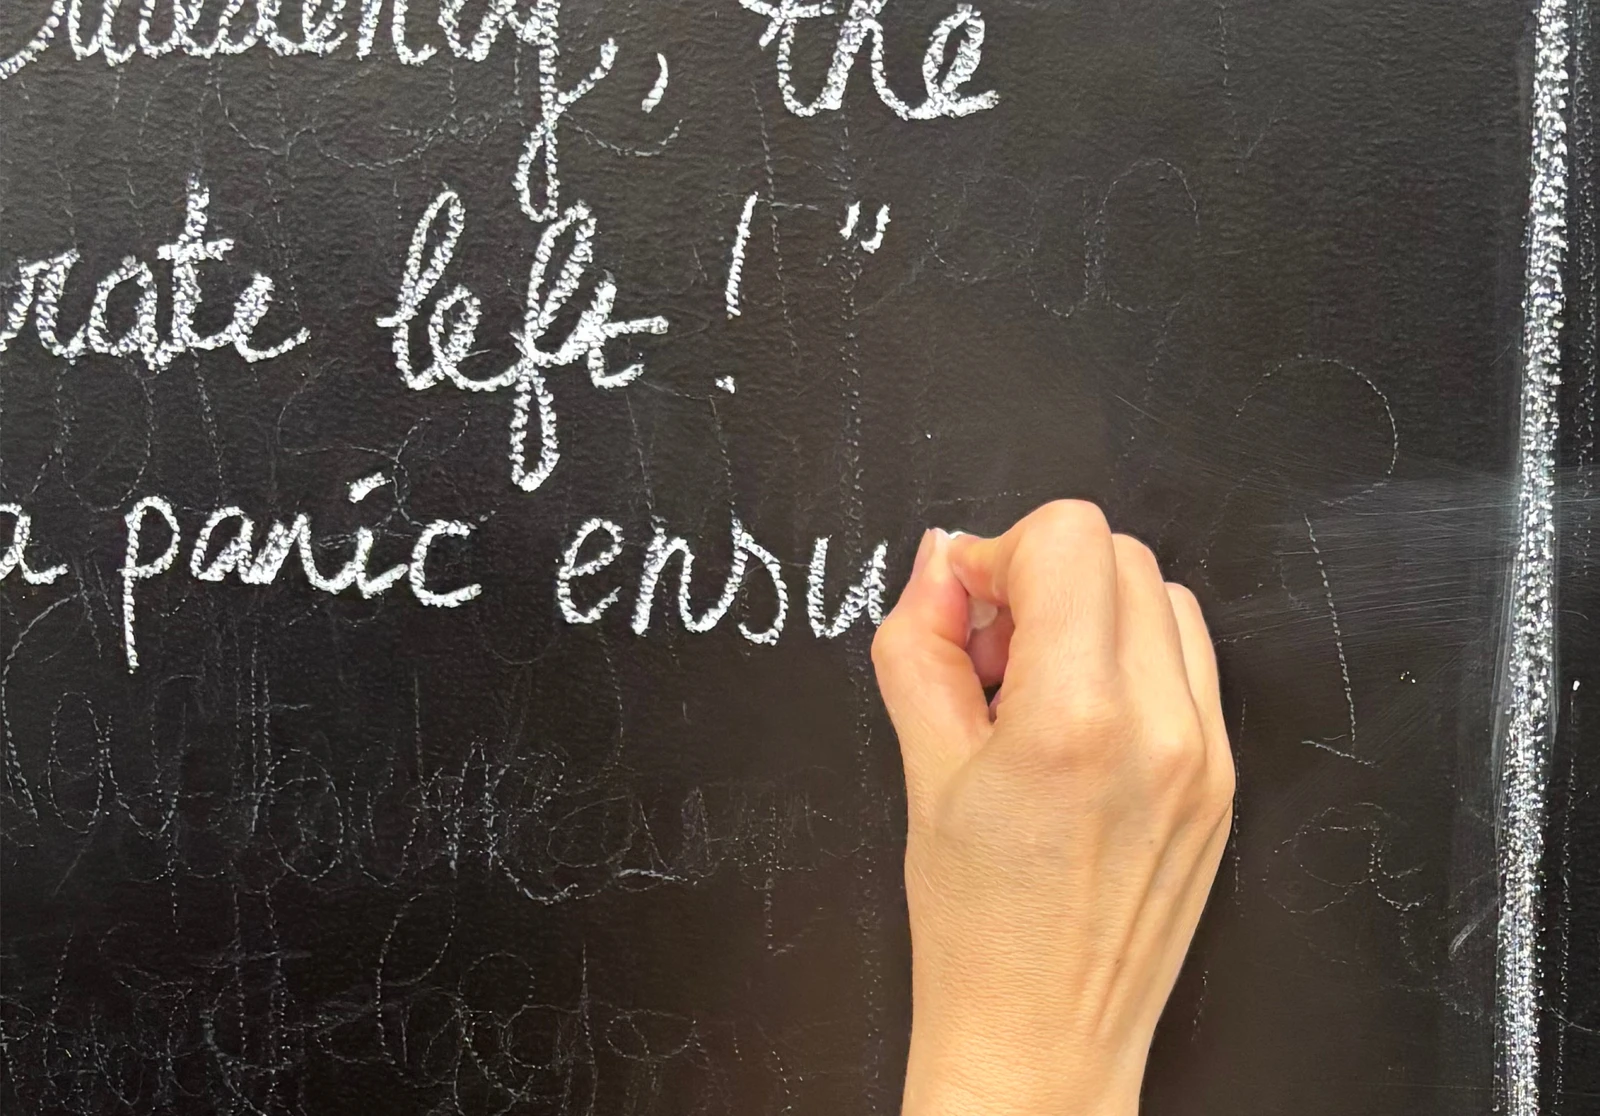 suddenly, the
rate left!"
a panic ensu